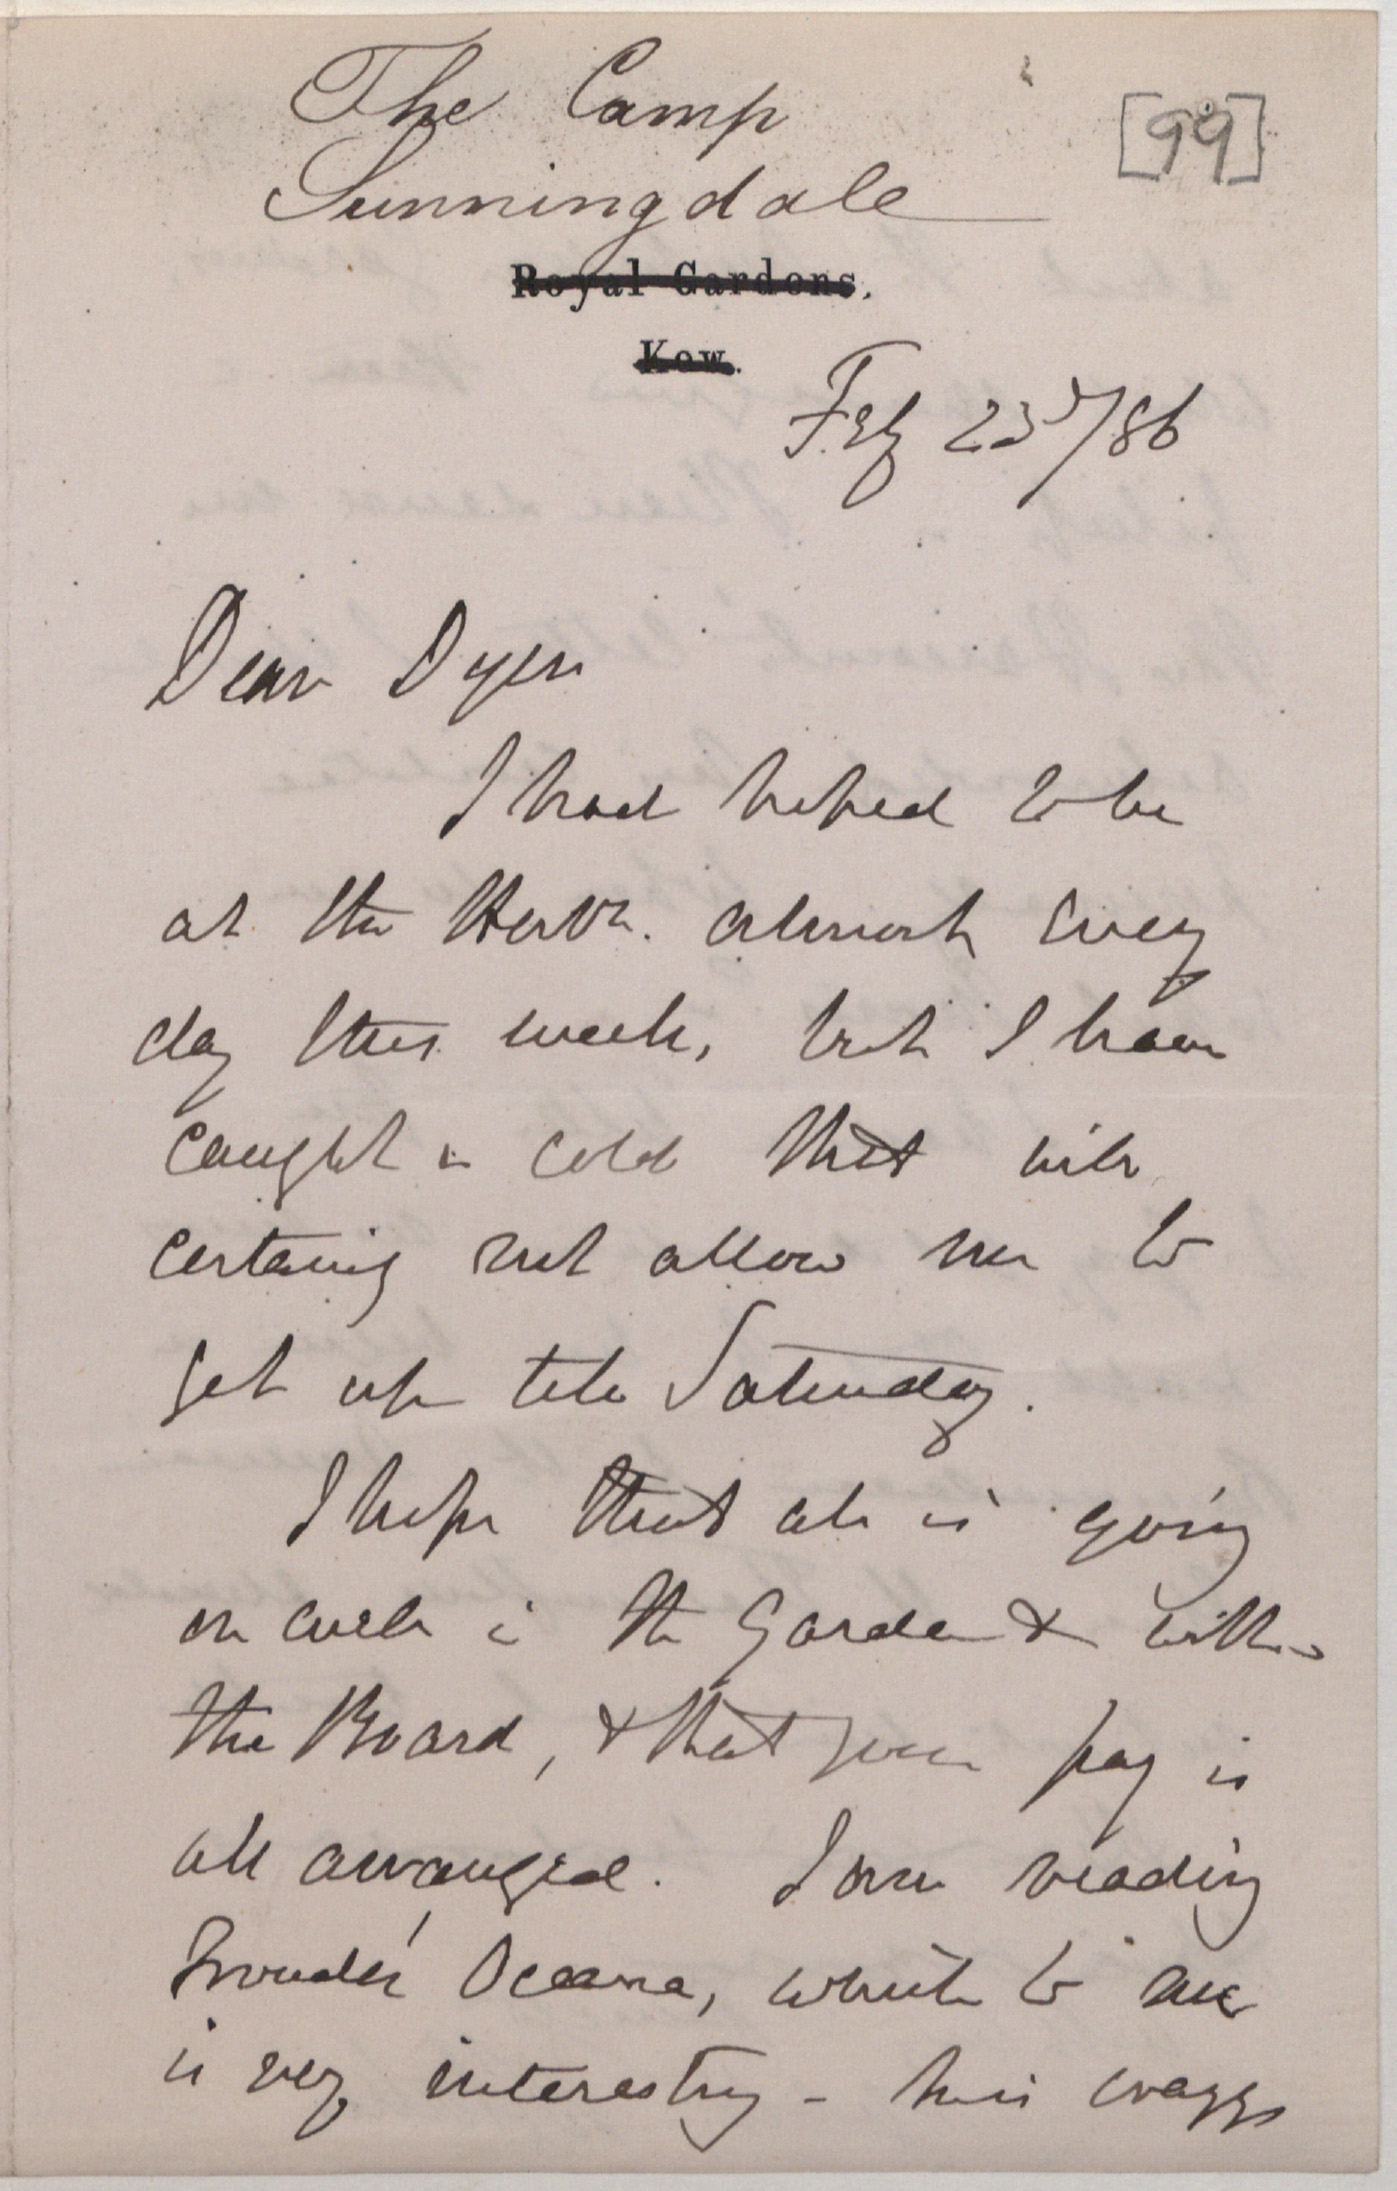 The Camp
Sunningdale
[99]
Royal Gardens.
Kew.
Feby 23d/86
Dear Dyer
I had hoped to be
at the Herbm. almost every
day this week, but I have
caught a cold that will
certainly not allow me to
get up till Saturday.
I hope that all is going
on well in the Garden & with
the Board, & that your pay is
all arranged. I am reading
Froude's Oceana, which to me
is very interesting - his